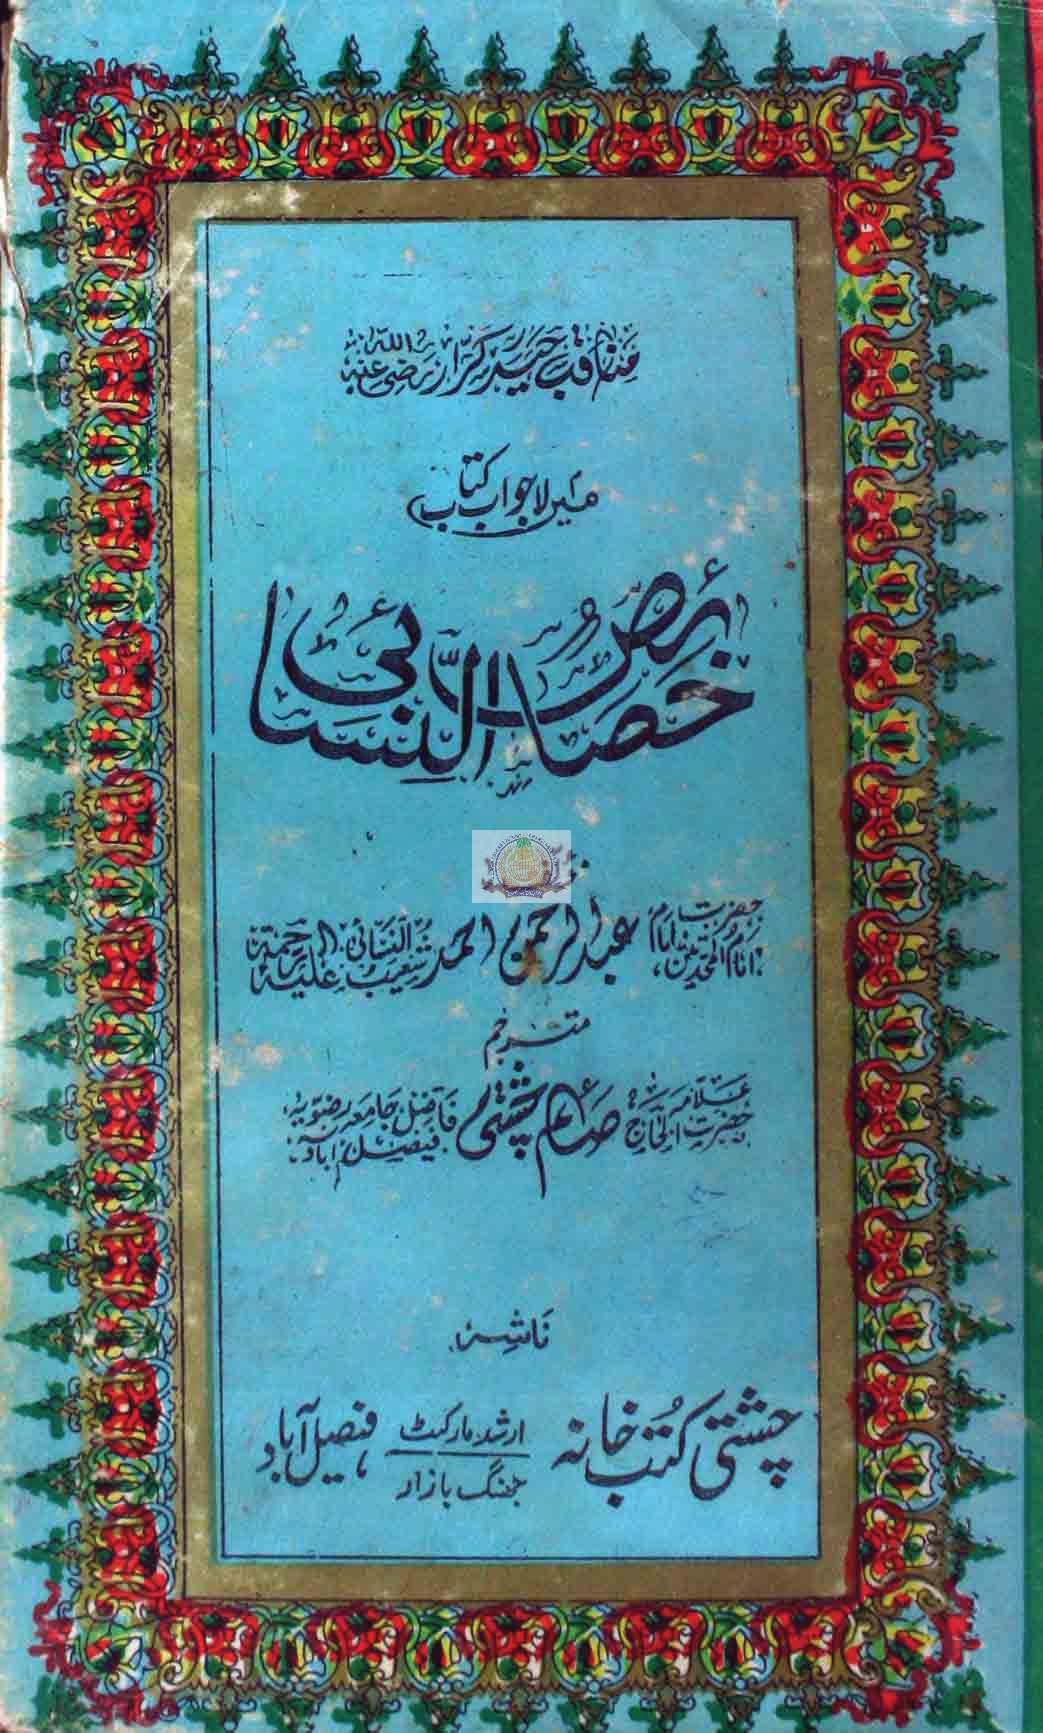 مناقب حیدر کرار رضی اللہ عنہ
میں لاجواب کتاب
خصائص النسائی
حضرت امام المحدثین امام عبدالرحمن احمد شعیب النسائی رحمۃ اللہ علیہ
مترجم
حضرت علامہ الحاج صائم چشتی فاضل جامعہ رضویہ فیصل آباد
ناشر
چشتی کتب خانہ ارشد مارکیٹ جھنگ بازار فیصل آباد